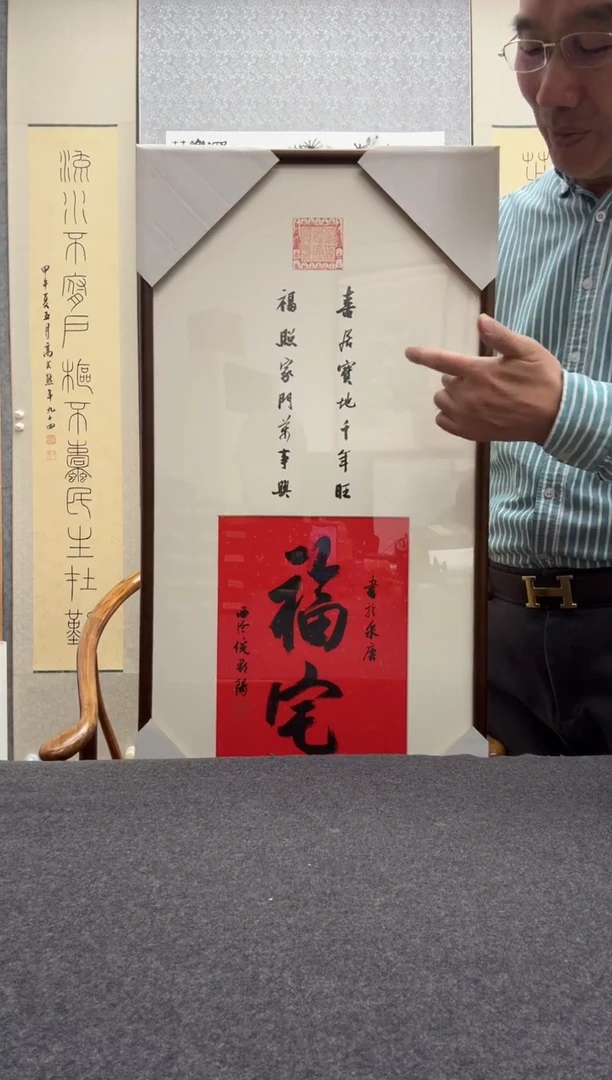 喜居寶地千年旺
福照家門萬事興
福宅
書於泉唐
西泠倪郡陽
流水不腐戶樞不蠹民生在勤
甲午夏五月高式熊年九十四